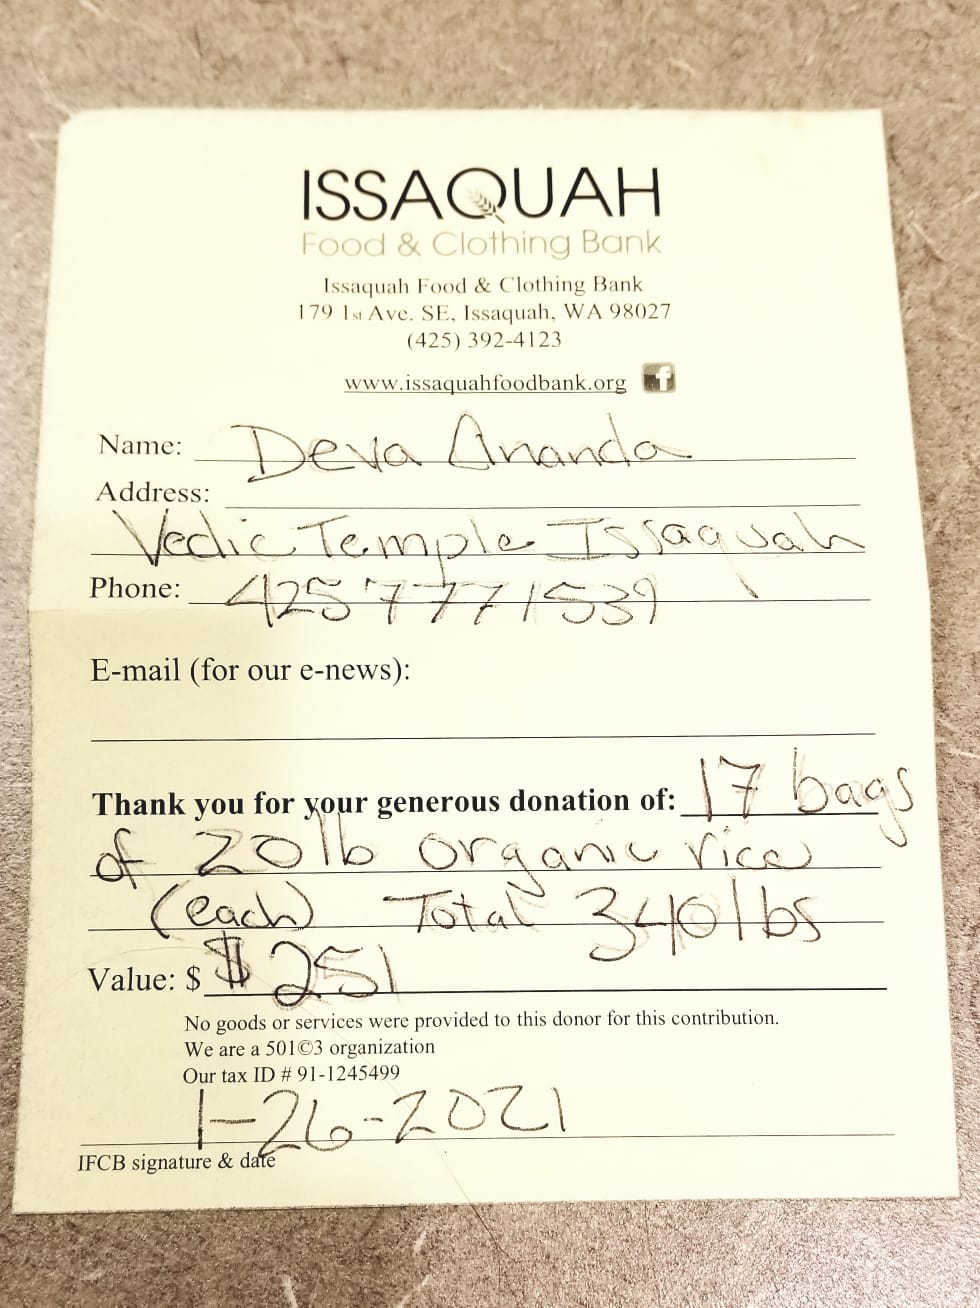 ISSAQUAH
Food & Clothing Bank
Issaquah Food & Clothing Bank
179 1st Ave. SE, Issaquah, WA 98027
(425) 392-4123
www.issaquahfoodbank.org f
Name: Deva Ananda
Address:
Vedic Temple Issaquah
Phone: 425 777 1539
E-mail (for our e-news):
Thank you for your generous donation of: 17 bags
of 20 lb organic rice
(each) Total 340 lbs
Value: $ $ 251
No goods or services were provided to this donor for this contribution.
We are a 501©3 organization
Our tax ID # 91-1245499
1-26-2021
IFCB signature & date